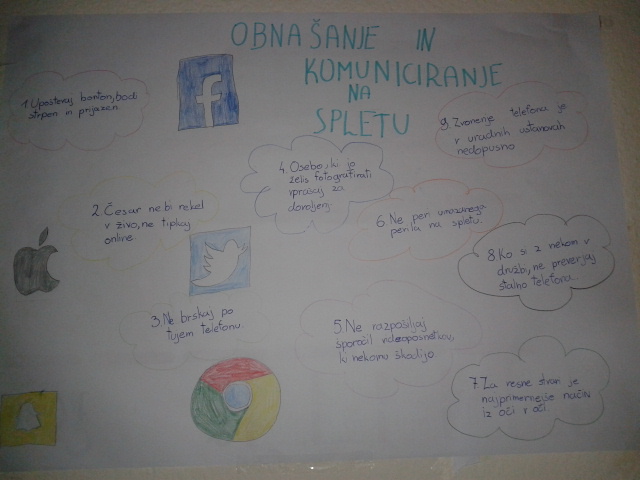 OBNAŠANJE IN
KOMUNICIRANJE
NA
SPLETU
1. Upoštevaj bonton, bodi
strpen in prijazen.
2. Česar ne bi rekel
v živo, ne tipkaj
online.
3. Ne brskaj po
tujem telefonu.
4. Osebo, ki jo
želiš fotografirati
vprašaj za
dovoljenj.
5. Ne razpošiljaj
sporočil videoposnetkov,
ki nekomu škodijo
6. Ne peri umazanega
perila na spletu.
7. Za resne stvari je
najprimernejše način
iz oči v oči
8. Ko si z nekom v
družbi, ne preverjaj
stalno telefona.
9. Zvonenje telefona je
v uradnih ustanovah
nedopustno
f